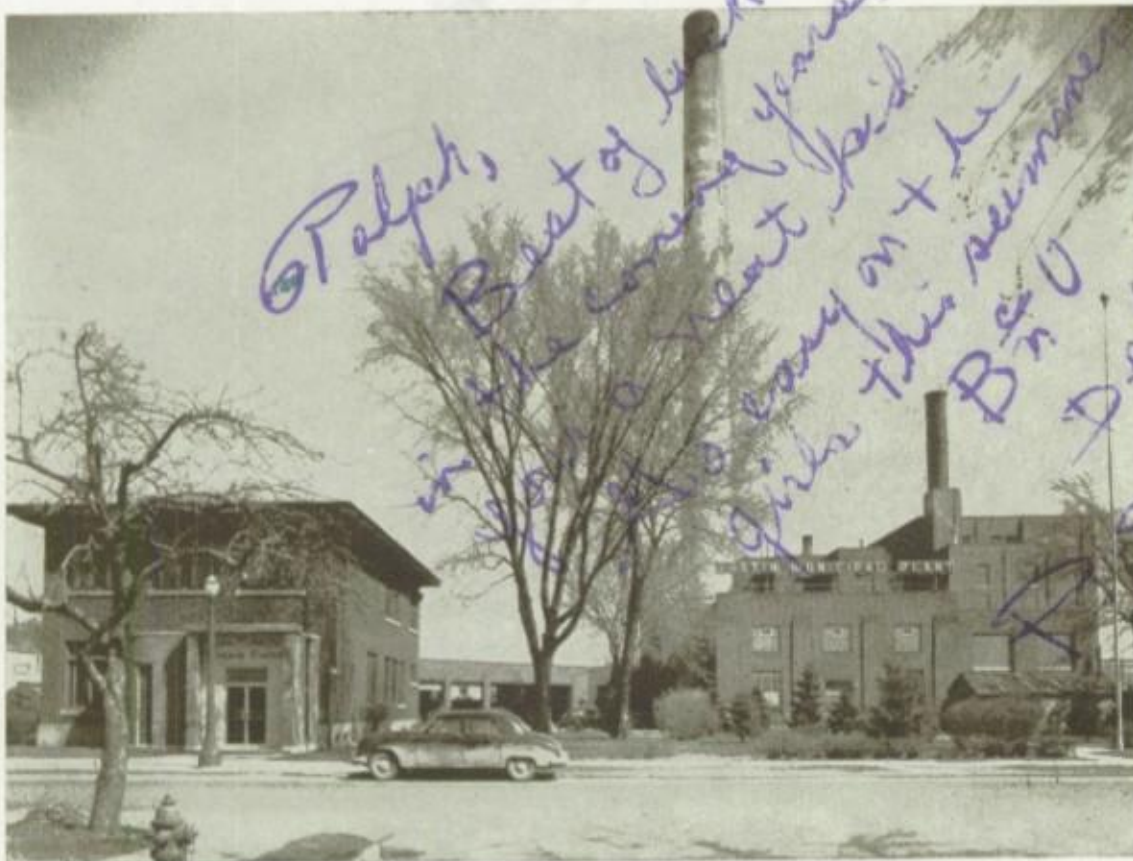 Ralph,
Best of
in the coming years
for a neat kid
go easy on the
girls this summer
B c n U
AUSTIN MUNICIPAL PLANT